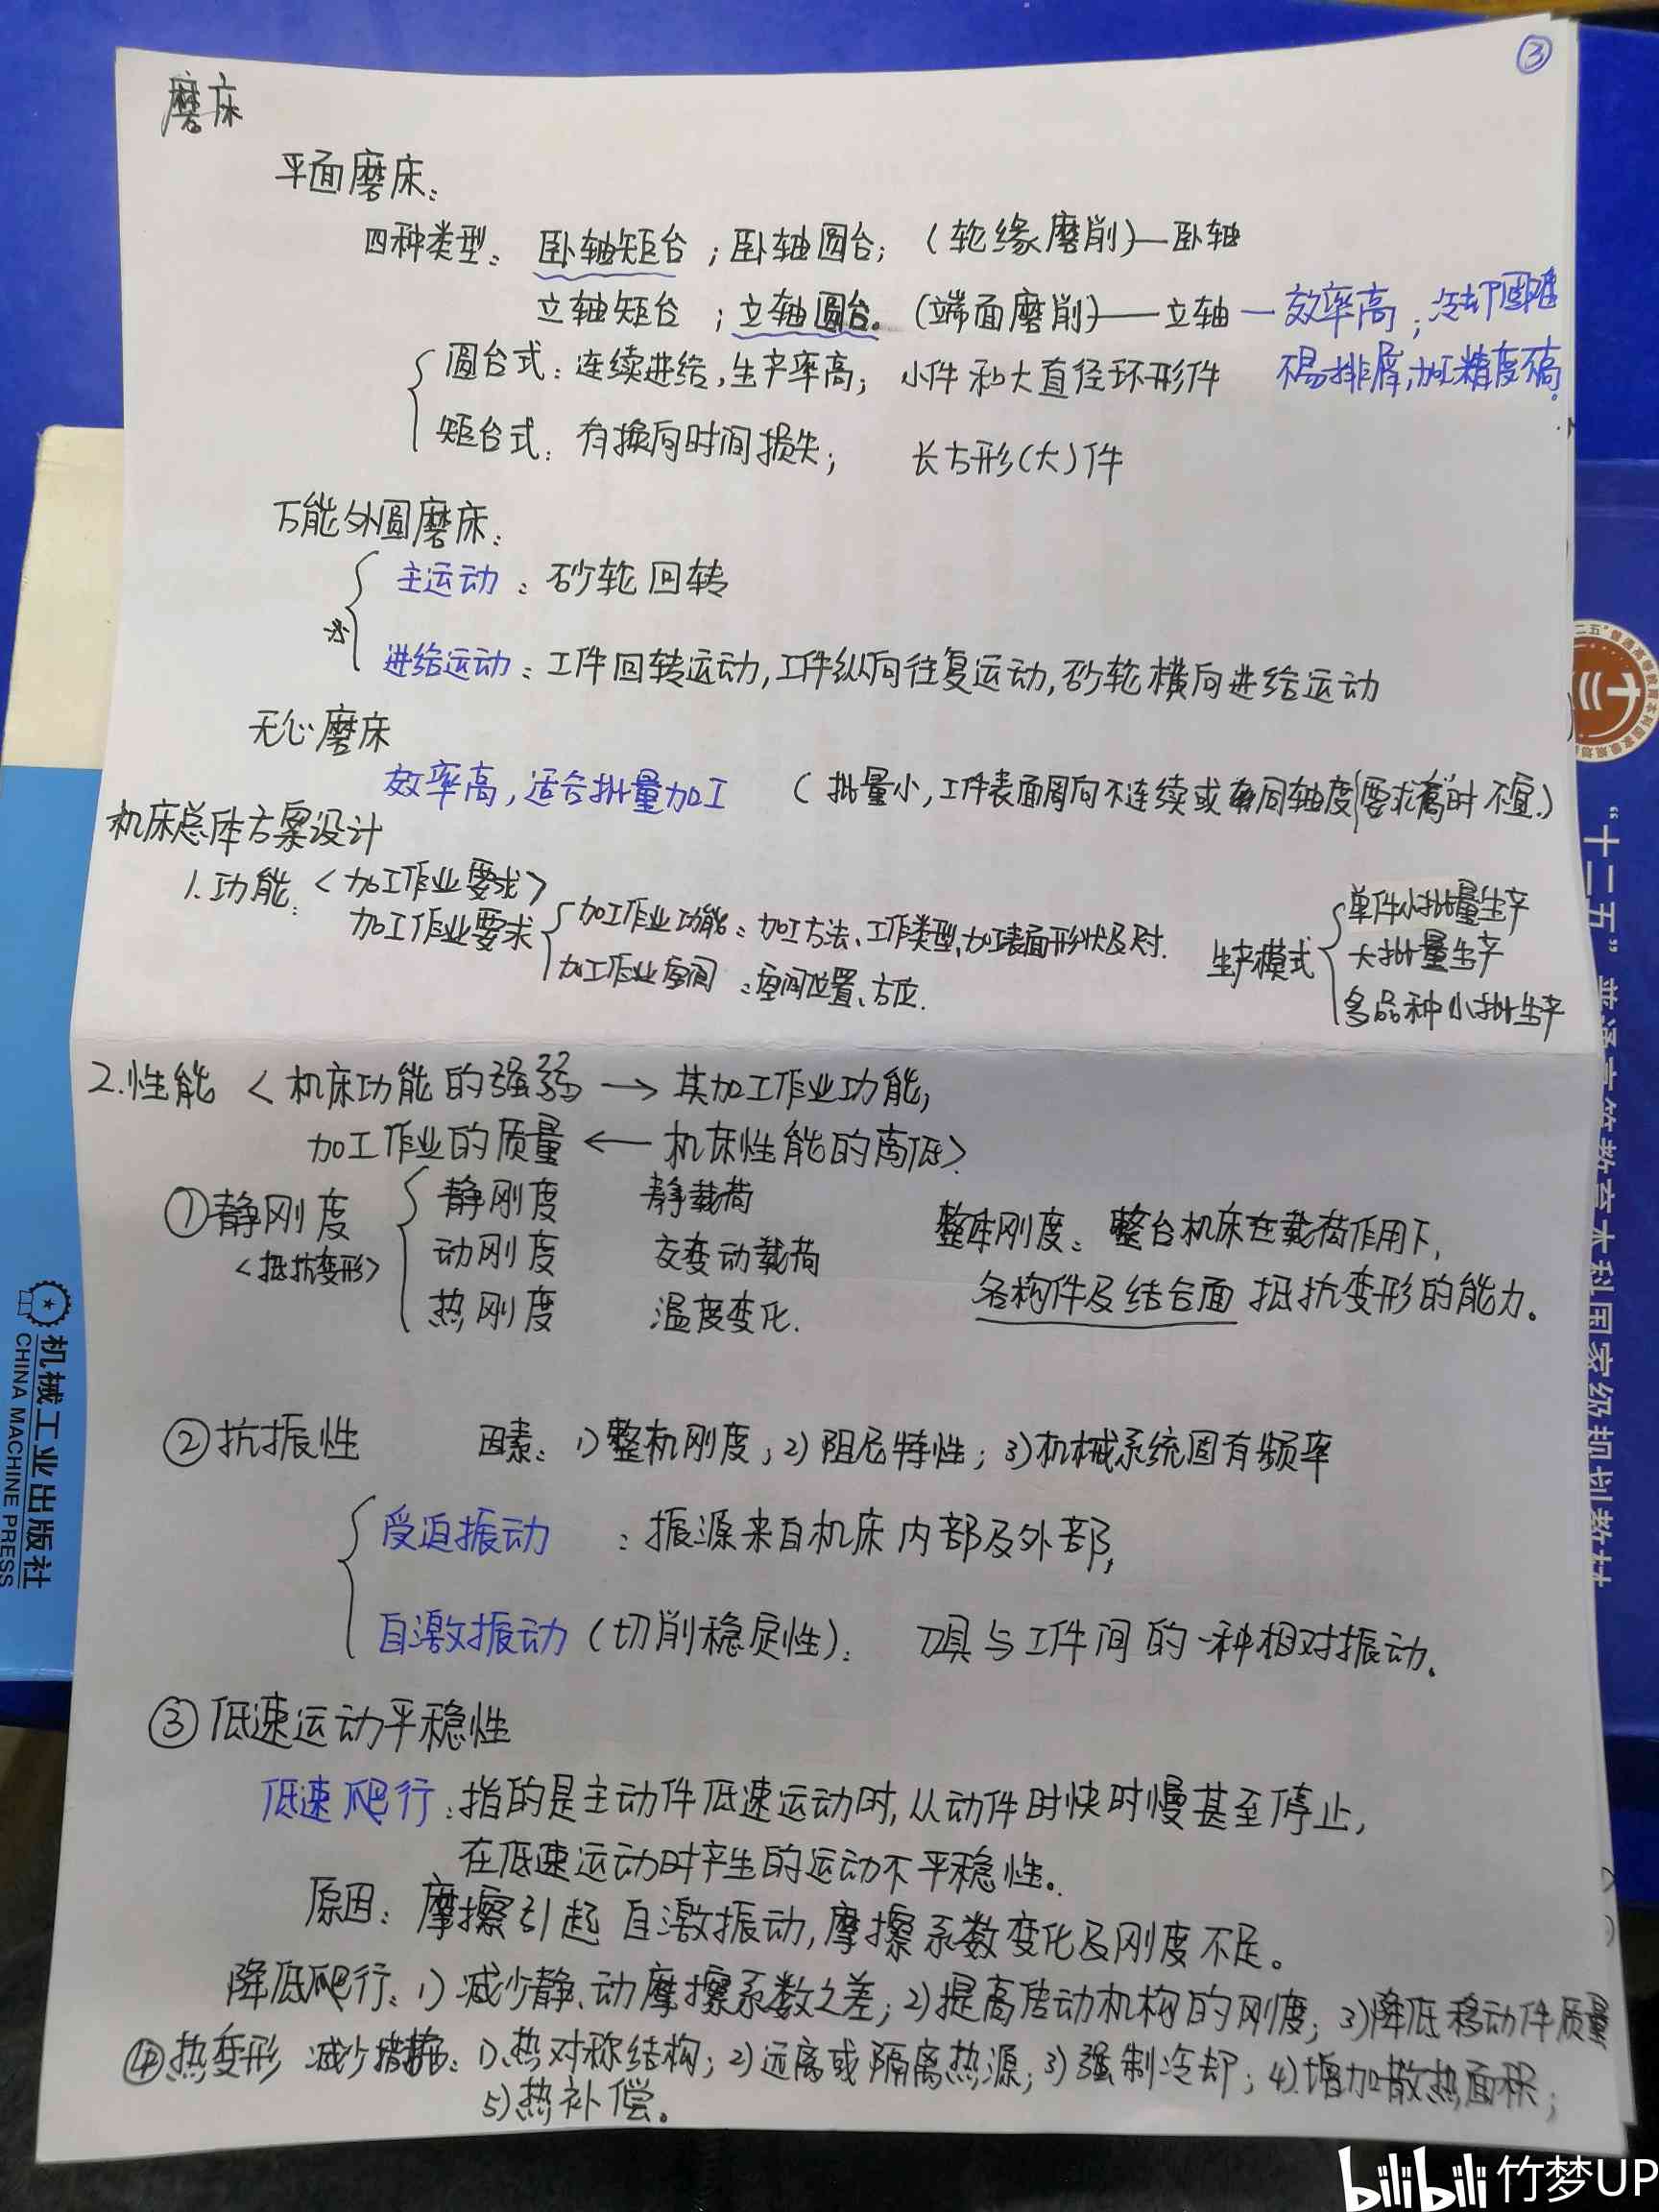 ③
磨床
平面磨床:
四种类型: 卧轴矩台;卧轴圆台; (轮缘磨削)—卧轴
立轴矩台 ;立轴圆台。(端面磨削)—立轴—效率高;冷却困难
圆台式:连续进给,生产率高; 小件和大直径环形件 不易排屑,加工精度不高。
矩台式: 有换向时间损失; 长方形(大)件
万能外圆磨床:
主运动: 砂轮回转
进给运动:工件回转运动,工件纵向往复运动,砂轮横向进给运动
无心磨床
效率高,适合批量加工 (批量小,工件表面周向不连续或 同轴度要求高时不宜.)
机床总体方案设计
1.功能:<加工作业要求>
加工作业要求
加工作业功能:加工方法、工作类型,加工表面形状及尺寸.
加工作业空间:空间位置、方位.
生产模式
单件小批量生产
大批量生产
多品种小批生产
2.性能 <机床功能的强弱→其加工作业功能,
加工作业的质量←机床性能的高低>
①静刚度
<抵抗变形>
静刚度 静载荷
动刚度 交变动载荷
热刚度 温度变化.
整体刚度:整台机床在载荷作用下,
各构件及结合面抵抗变形的能力。
②抗振性 因素:1)整机刚度;2)阻尼特性;3)机械系统固有频率
受迫振动 :振源来自机床内部及外部,
自激振动(切削稳定性): 刀具与工件间的一种相对振动.
③低速运动平稳性
低速爬行:指的是主动件低速运动时,从动件时快时慢甚至停止,
在低速运动时产生的运动不平稳性。
原因:摩擦引起自激振动,摩擦系数变化及刚度不足。
降低爬行:1)减少静、动摩擦系数之差;2)提高传动机构的刚度;3)降低移动件质量
④热变形 减少措施:1)热对称结构;2)远离或隔离热源;3)强制冷却;4)增加散热面积;
5)热补偿。
机械工业出版社
CHINA MACHINE PRESS
"十二五"普通高等教育本科国家级规划教材
bilibili 竹梦UP